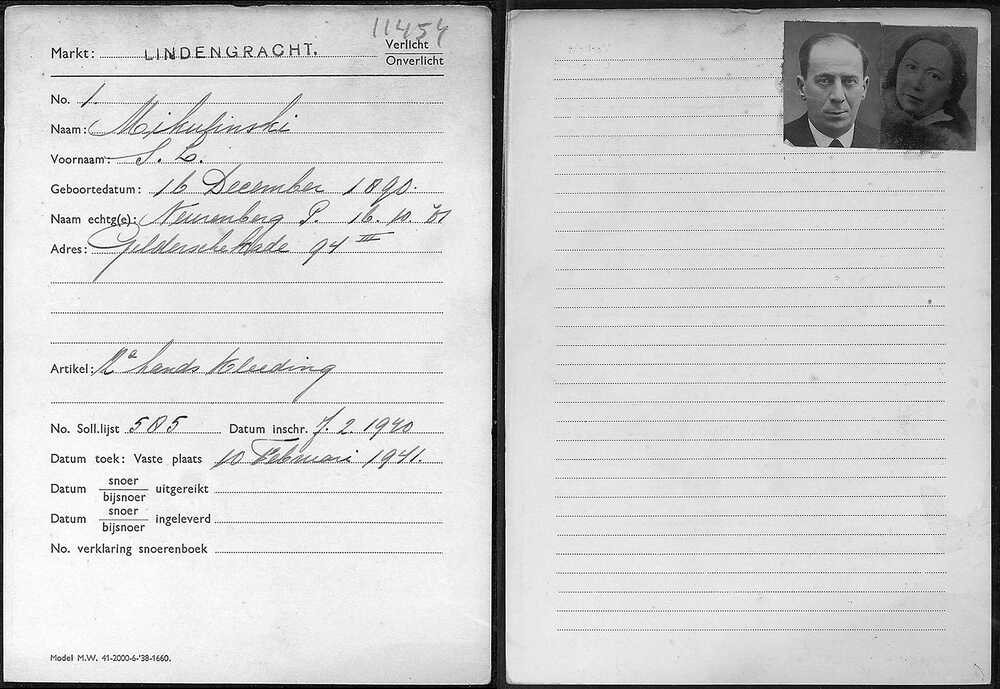 11454
Markt: LINDENGRACHT. Verlicht
Onverlicht
No. 1.
Naam: Mikulinski
Voornaam: S. L.
Geboortedatum: 16 December 1890.
Naam echtg(e): Neurenberg P. 16.10.'01
Adres: Geldersche Kade 94 III
Artikel: 2e hands Kleeding
No. Soll.lijst 585 Datum inschr. 7.2.1940
Datum toek: Vaste plaats 10 Februari 1941.
Datum snoer
bijsnoer uitgereikt
Datum snoer
bijsnoer ingeleverd
No. verklaring snoerenboek
Model M.W. 41-2000-6-'38-1660.